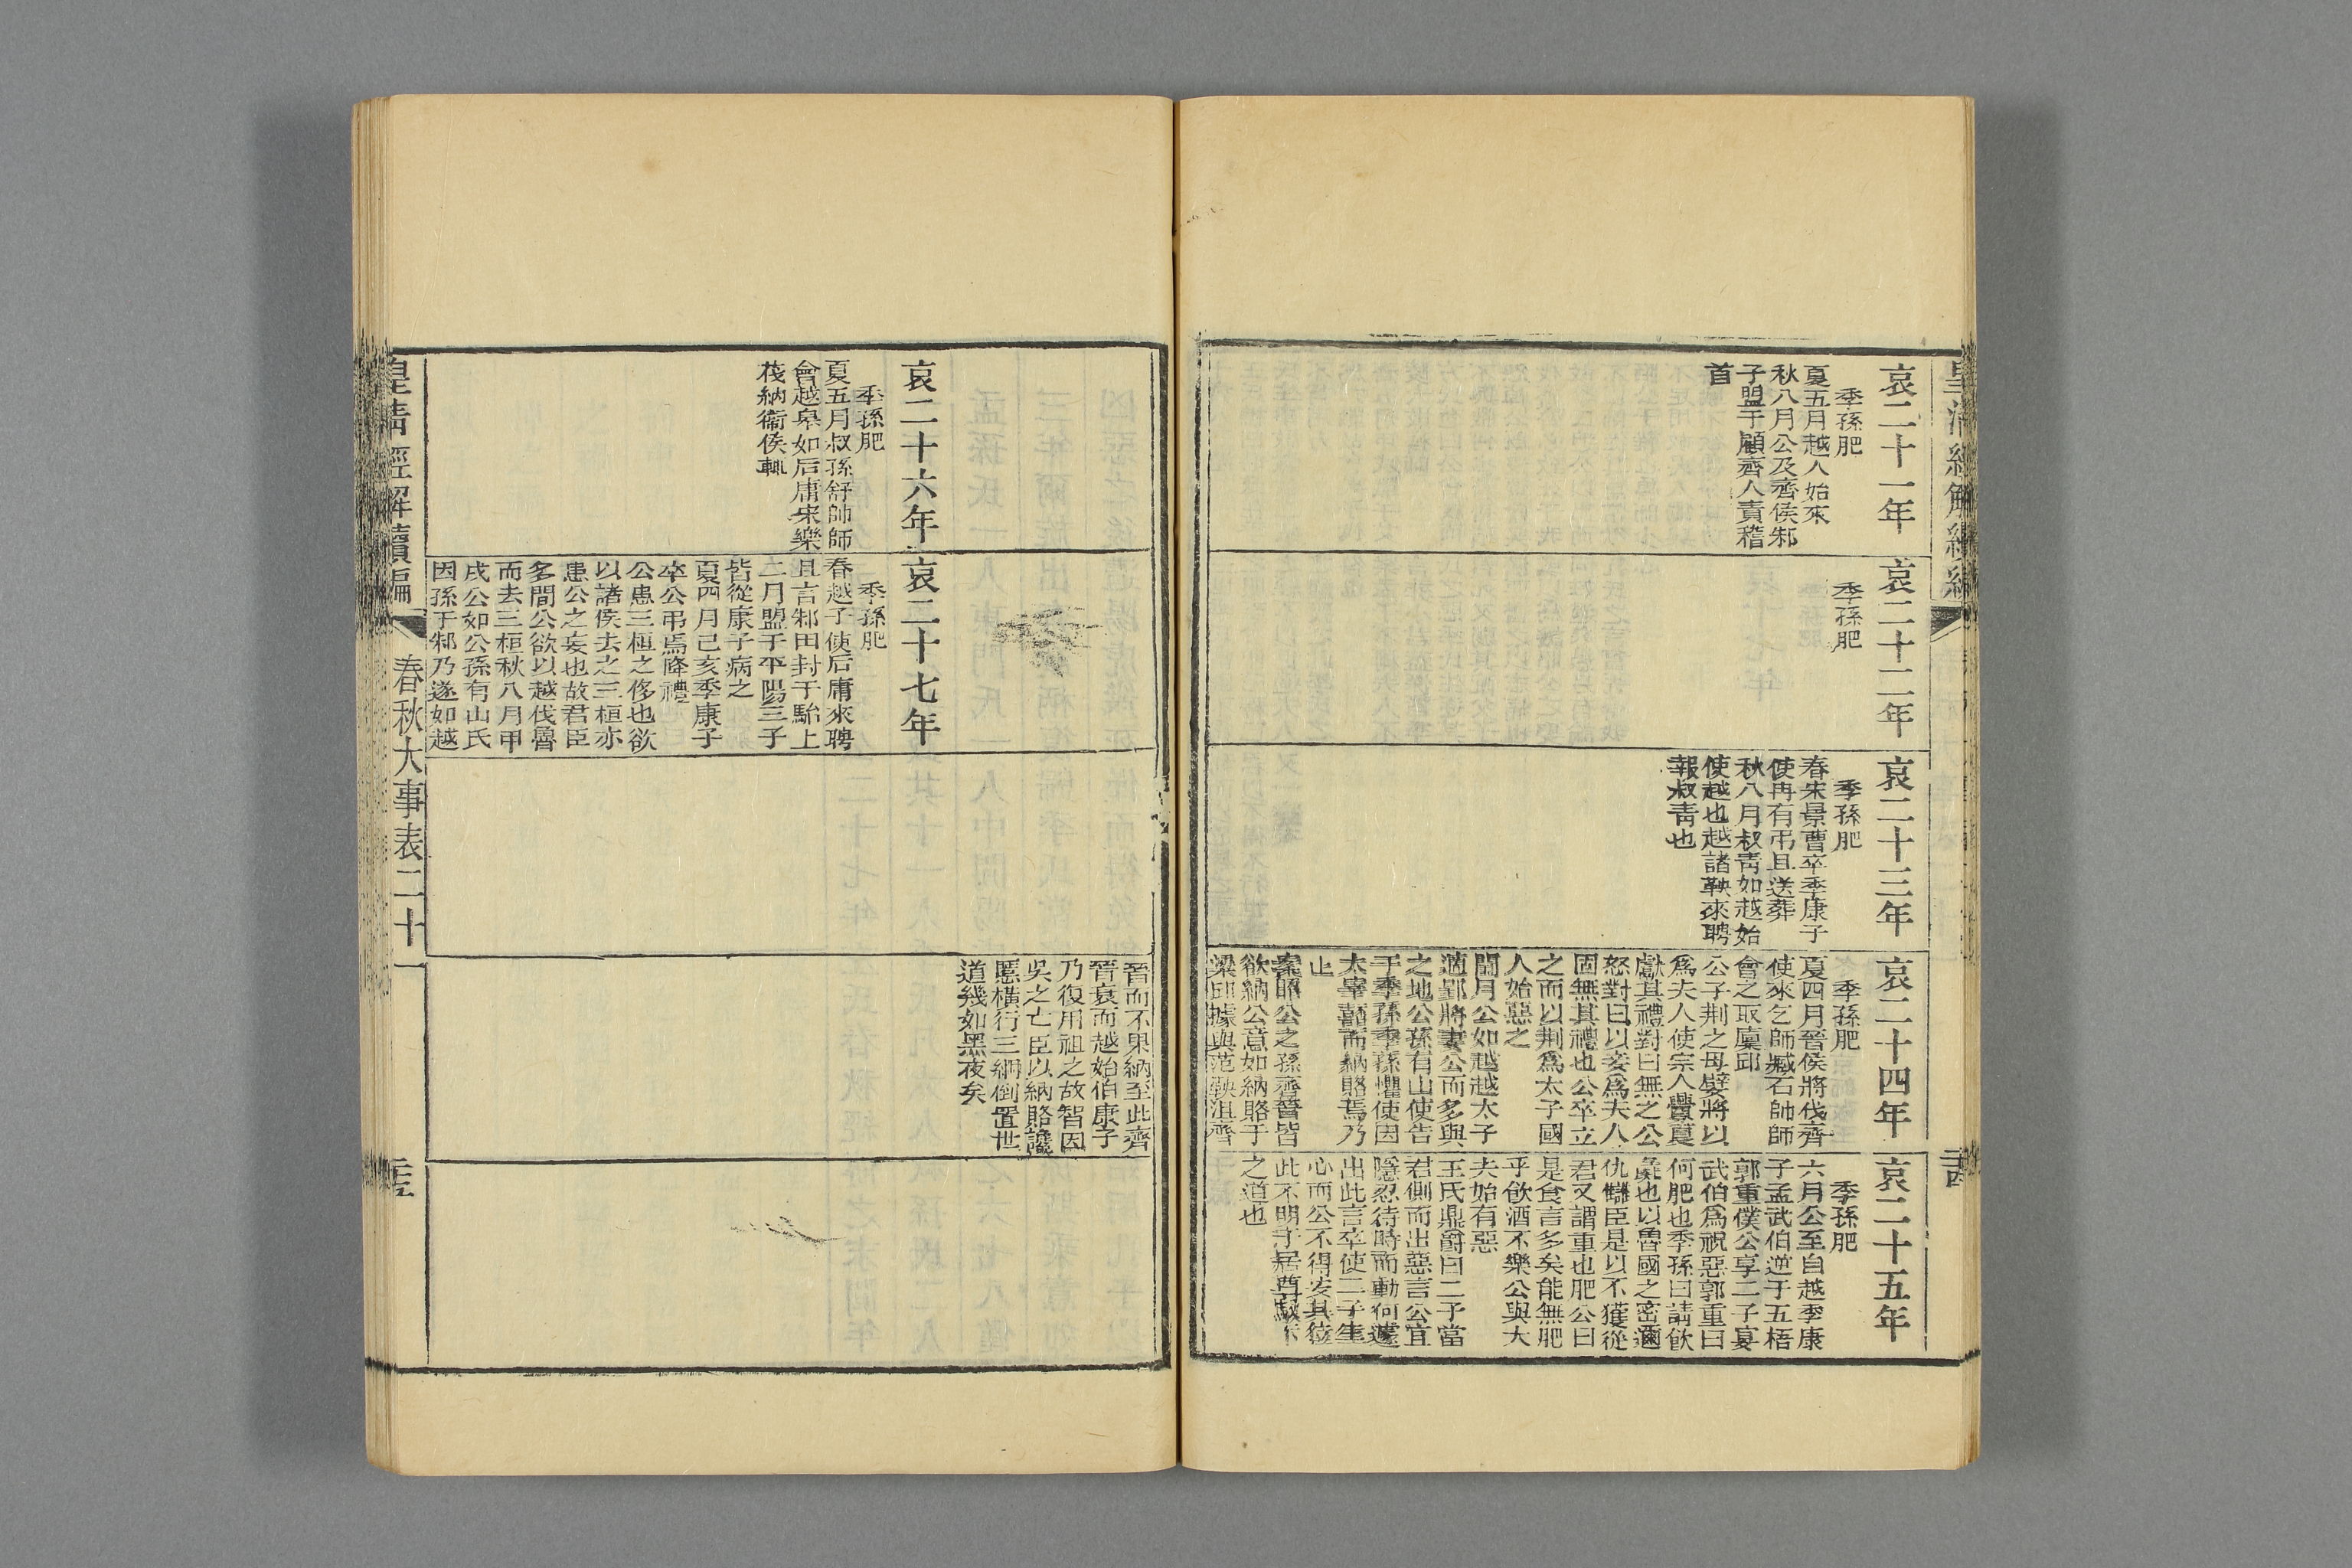 皇清經解續編
哀二十一年
季孫肥
夏五月越人始來
秋八月公及齊侯邾
子盟于顧齊人責稽
首
哀二十二年
季孫肥
哀二十三年
季孫肥
春宋景曹卒季康子
使冉有弔且送葬
秋八月叔青如越始
使越也越諸鞅來聘
報叔青也
哀二十四年
季孫肥
夏四月晉侯將伐齊
使來乞師臧石帥師
會之取廩邱
公子荆之母嬖將以
爲夫人使宗人釁夏
獻其禮對曰無之公
怒對曰以妾爲夫人
固無其禮也公卒立
之而以荆爲太子國
人始惡之
閏月公如越越太子
適郢將妻公而多與
之地公孫有山使告
于季孫季孫懼使因
太宰嚭而納賂焉乃
止
案昭公之孫齊晉皆
欲納公意如納賂于
梁邱據與范鞅沮齊
哀二十五年
季孫肥
六月公至自越季康
子孟武伯逆于五梧
郭重僕公享二子宴
武伯爲祝惡郭重曰
何肥也季孫曰請飲
彘也以魯國之密邇
仇讎臣是以不獲從
君又謂重也肥公曰
是食言多矣能無肥
乎飲酒不樂公與大
夫始有惡
王氏鼎爵曰二子當
君側而出惡言公宜
隱忍待時而動何遽
出此言卒使二子生
心而公不得安其位
此不明于居尊馭下
之道也
二十四
哀二十六年
季孫肥
夏五月叔孫舒帥師
會越皋如后庸宋樂
茷納衞侯輒
哀二十七年
季孫肥
春越子使后庸來聘
且言邾田封于駘上
二月盟于平陽三子
皆從康子病之
夏四月己亥季康子
卒公弔焉降禮
公患三桓之侈也欲
以諸侯去之三桓亦
患公之妄也故君臣
多間公欲以越伐魯
而去三桓秋八月甲
戌公如公孫有山氏
因孫于邾乃遂如越
晉而不果納至此齊
晉衰而越始伯康子
乃復用祖之故智因
吳之亡臣以納賂讒
慝橫行三綱倒置世
道幾如黑夜矣
皇清經解續編
春秋大事表二十一
二十五